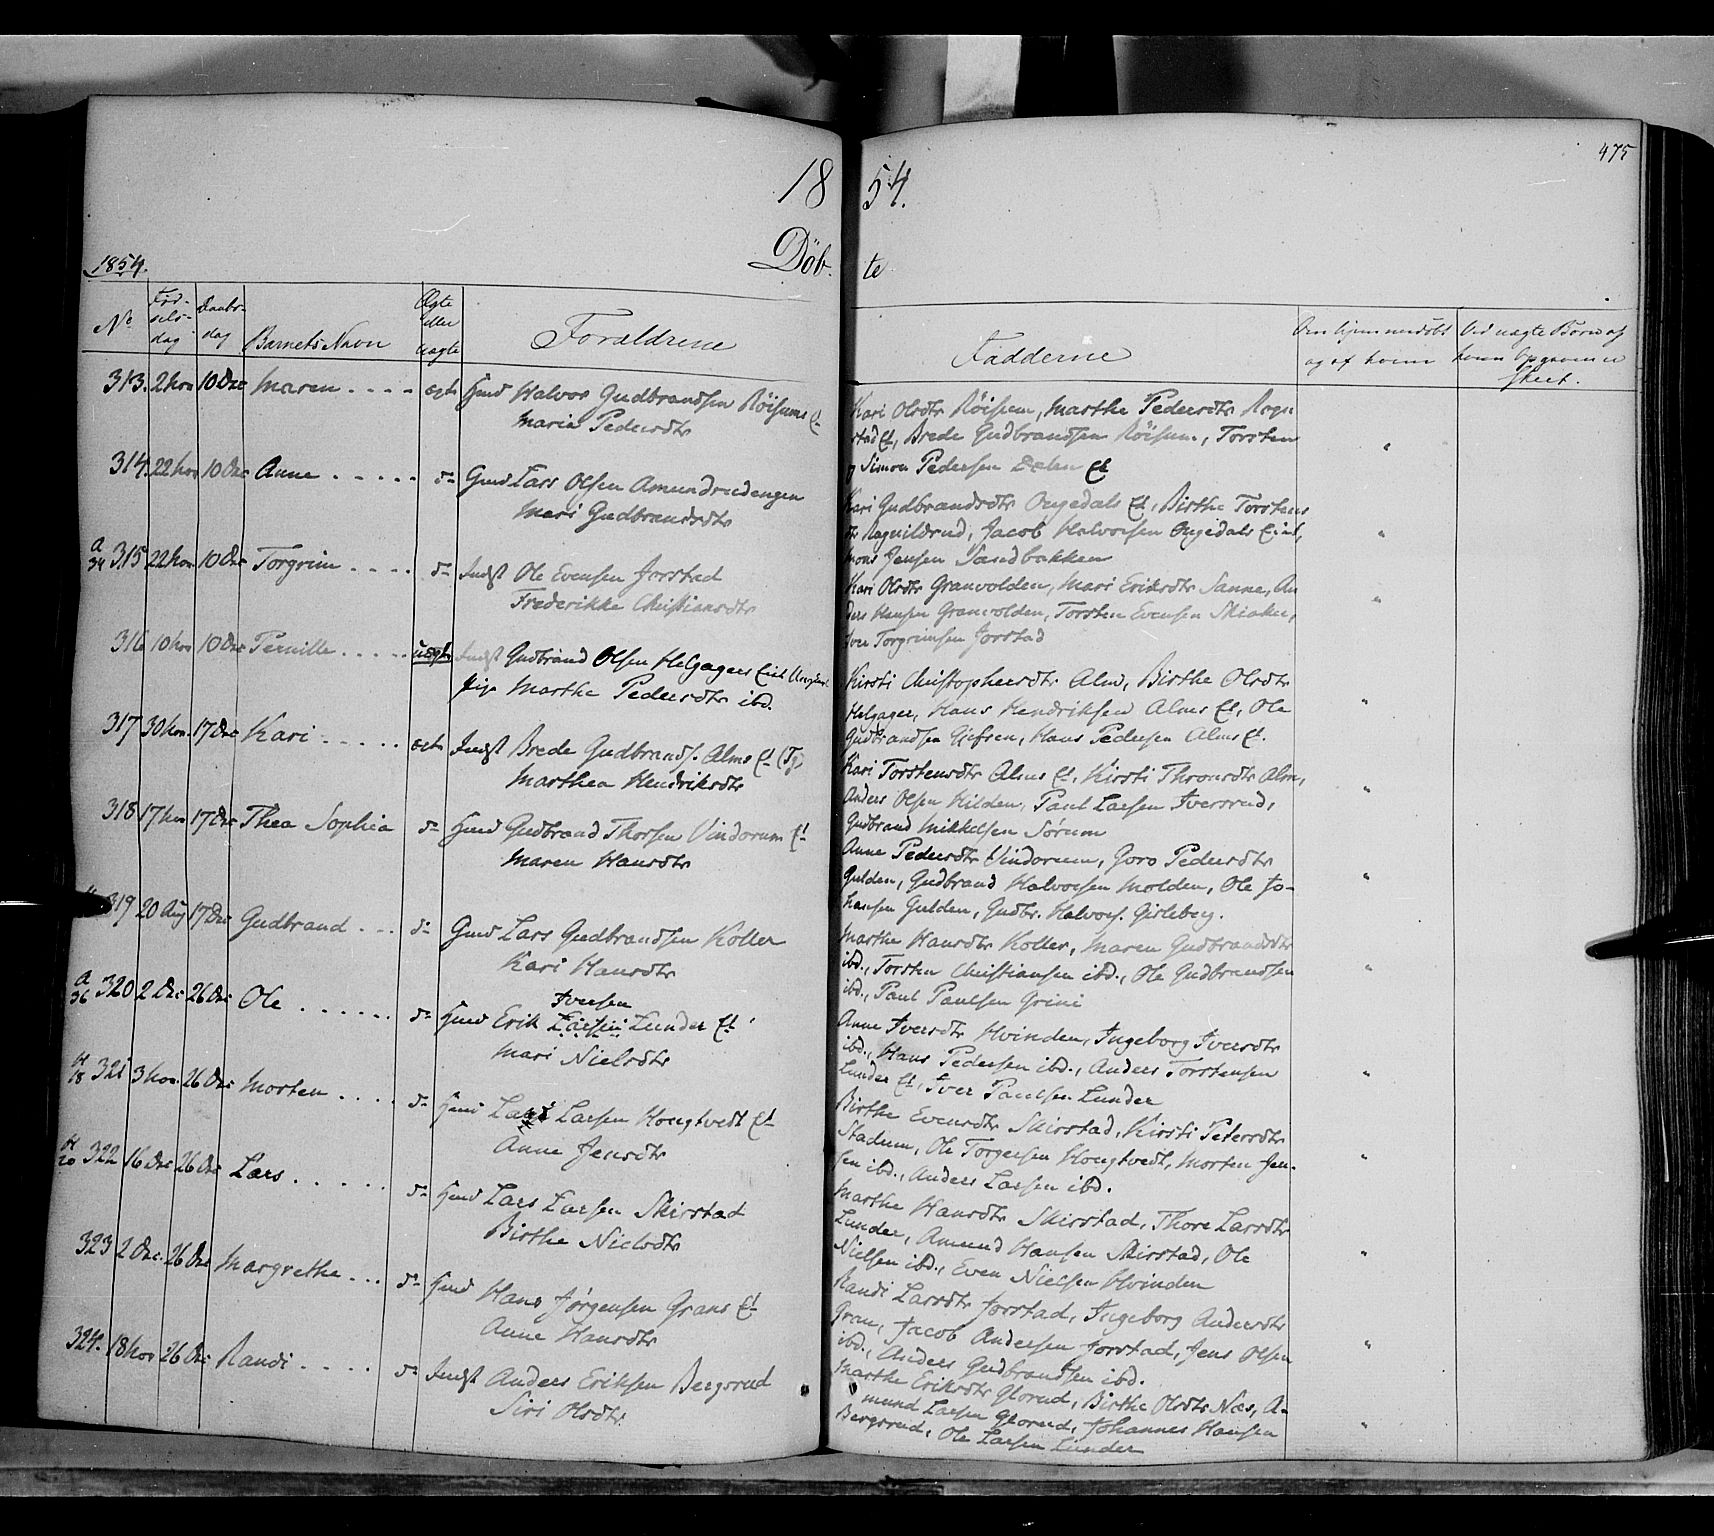 475
18 54.
1854. Döb. te
No Fødselsdag Daabsdag Barnets Navn Ægte eller uægte Forældrene
Fadderne Om hjemmedøbt og af hvem Ved uægte Børn af hvem Opgaven er skeet.
313. 2 Nov 10 Dec Maren . . . . ægte Gmd Halvor Gudbrandsen Röisums Et
Maria Pedersdtr
Kari Olsdtr Röisum, Marthe Pedersdtr Rogn
stad Et, Brede Gudbrandsen Röisum, Torsten
og Simon Pedersen Dælen Et "
314. 22 Nov 10 Dec Anne . . . . . do Gmd Lars Olsen Amundrudengen
Mari Gudbrandsdtr
Kari Gudbrandsdtr Ongedals Et, Birthe Torstens
dtr Ragnildrud, Jacob Halvorsen Ongedals Eint,
Mons Jensen Sandbakken "
A 34 315 22 Nov 10 Dec Torgrim . . . . do Indst Ole Evensen Jorstad
Frederikke Christiansdtr
Kari Olsdtr Granvolden, Mari Eriksdtr Sanne, An
ders Hansen Granvolden, Torsten Evensen Skiaker,
Iver Torgrimsen Jorstad "
316 10 Nov 10 Dec Pernille . . . . . uægte Indst Gudbrand Olsen Helgager Eint Ungkarl
Pige Marthe Pedersdtr ibd.
Kirsti Christophersdtr Alm, Birthe Olsdtr
Helgager, Hans Hendriksen Alms Et, Ole
Gudbrandsen Gjefsen, Hans Pedersen Alms Et. "
317 30 Nov. 17 Dec Kari . . . . . ægte Indst Brede Gudbrands. Alms Et (Tg)
Marthea Hendriksdtr
Kari Torstensdtr Alms Et, Kirsti Thronsdtr Alm,
Anders Olsen Hilden, Paul Larsen Iversrud,
Gudbrand Mikkelsen Sørum "
318 17 Nov 17 Dec Thea Sophia do Gmd Gudbrand Thorsen Vindorum Et
Maren Hansdtr
Anne Pedersdtr Vindorum, Goro Pedersdtr
Gulden, Gudbrand Halvorsen Molden, Ole Jo-
hansen Gulden, Gudbr. Halvors. Gisleberg. "
319 20 Aug 17 Dec Gudbrand . . . do Gmd Lars Gudbrandsen Koller
Kari Hansdtr
Marthe Hansdtr Koller, Maren Gudbrandsdtr
ibd., Torsten Christiansen ibd., Ole Gudbrandsen
ibd., Paul Paulsen Grini "
A 36 320 2 Dec 26 Dec Ole . . . . . . do Gmd Erik Larsen Iversen Lunder Et
Mari Nielsdtr
Anne Iversdtr Hvinden, Ingeborg Iversdtr
ibd., Hans Pedersen ibd., Anders Torstensen
Lunder Et, Iver Paulsen Lunder "
H 18 321 3 Nov. 26 Dec Morten . . . . do Gmd Lars Larsen Hougtvedt Et
Anne Jensdtr
Birthe Evensdtr Skirstad, Kirsti Petersdtr
Stadum, Ole Torgersen Hougtvedt, Morten Jen-
sen ibd., Anders Larsen ibd. "
H 20 322 16 Dec 26 Dec Lars . . . . . do Gmd Lars Larsen Skirstad
Birthe Nielsdtr
Marthe Hansdtr Skirstad, Thore Larsdtr
Lunder, Amund Hansen Skirstad, Ole
Nielsen ibd., Even Nielsen Hvinden "
323 2 Dec. 26 Dec Margrethe . . . do Gmd Hans Jørgensen Grans Et
Anne Hansdtr
Randi Larsdtr Jorstad, Ingeborg Andersdtr
Gran, Jacob Andersen Jorstad, Jens Olsen
ibd., Anders Gudbrandsen ibd. "
324. 18 Nov 26 Dec Randi . . . . do Indst Anders Eriksen Bergsrud
Siri Olsdtr
Marthe Eriksdtr Glorud, Birthe Olsdtr Næs, A-
mund Larsen Glorud, Johannes Hansen
Bergsrud, Ole Larsen Lunder "